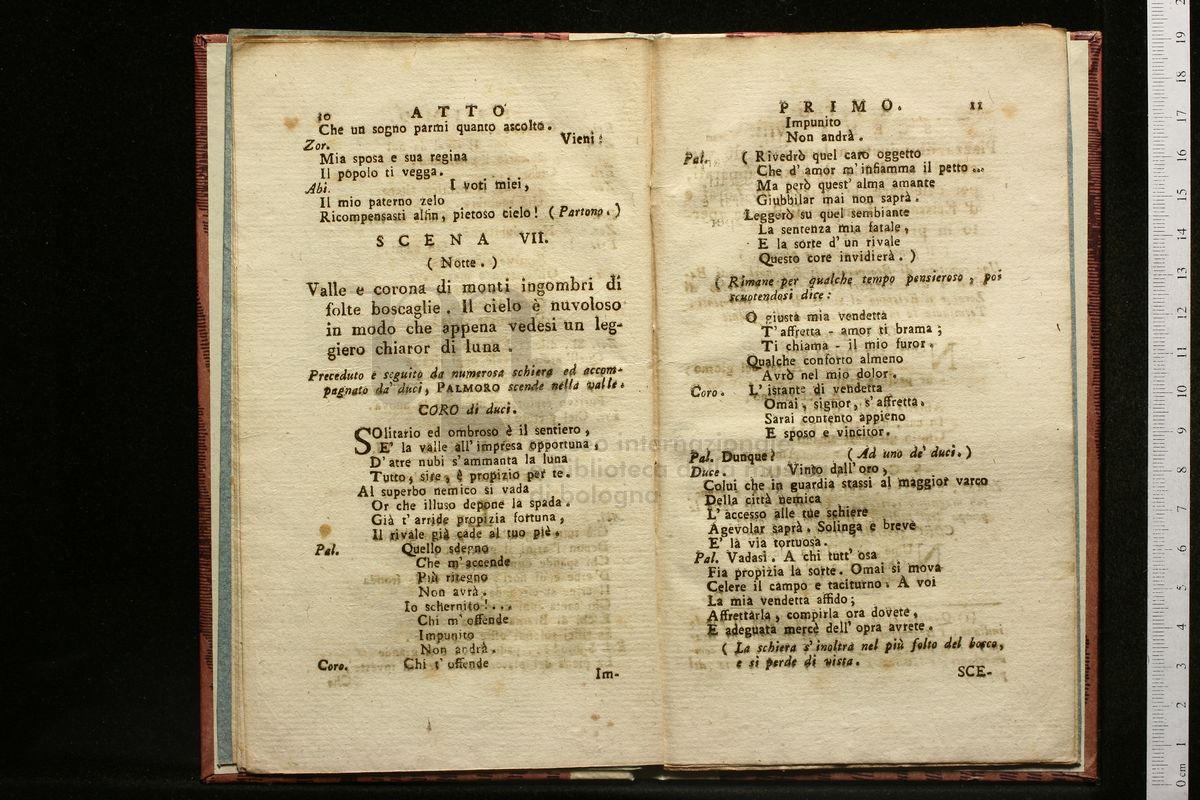 10 ATTO
Che un sogno parmi quanto ascolto.
Zor. Vieni!
Mia sposa e sua regina
Il popolo ti vegga.
Abi. I voti miei,
Il mio paterno zelo
Ricompensasti alfin, pietoso cielo! (Partono.)
SCENA VII.
(Notte.)
Valle e corona di monti ingombri di
folte boscaglie. Il cielo è nuvoloso
in modo che appena vedesi un leg-
giero chiaror di luna.
Preceduto e seguito da numerosa schiera ed accom-
pagnato da' duci, PALMORO scende nella valle.
CORO di duci.
SOlitario ed ombroso è il sentiero,
E' la valle all' impresa opportuna,
D' atre nubi s' ammanta la luna
Tutto, sire, è propizio per te.
Al superbo nemico si vada
Or che illuso depone la spada.
Già t' arride propizia fortuna,
Il rivale già cade al tuo piè.
Pal. Quello sdegno
Che m' accende
Più ritegno
Non avrà.
Io schernito!...
Chi m' offende
Impunito
Non andrà.
Coro. Chi t' offende
Im-
PRIMO. 11
Impunito
Non andrà.
Pal. (Rivedrò quel caro oggetto
Che d' amor m' infiamma il petto ...
Ma però quest' alma amante
Giubbilar mai non saprà.
Leggerò su quel sembiante
La sentenza mia fatale,
E la sorte d' un rivale
Questo core invidierà.)
(Rimane per qualche tempo pensieroso, poi
scuotendosi dice:
O giusta mia vendetta
T' affretta - amor ti brama;
Ti chiama - il mio furor.
Qualche conforto almeno
Avrò nel mio dolor.
Coro. L' istante di vendetta
Omai, signor, s' affretta.
Sarai contento appieno
E sposo e vincitor.
Pal. Dunque? (Ad uno de' duci.)
Duce. Vinto dall' oro,
Colui che in guardia stassi al maggior varco
Della città nemica
L' accesso alle tue schiere
Agevolar saprà. Solinga e breve
E' là via tortuosa.
Pal. Vadasi. A chi tutt' osa
Fia propizia la sorte. Omai si mova
Celere il campo e taciturno. A voi
La mia vendetta affido;
Affrettarla, compirla ora dovete,
E adeguata mercè dell' opra avrete.
(La schiera s' inoltra nel più folto del bosco,
e si perde di vista.
SCE-